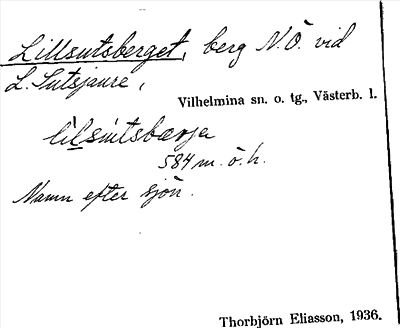 Lillsutsberget, berg N.Ö. vid
L. Sutsjaure,
Vilhelmina sn. o. tg., Västerb. l.
lìlsùtsbærja
584 m. ö. h.
Namn efter sjön.
Thorbjörn Eliasson, 1936.